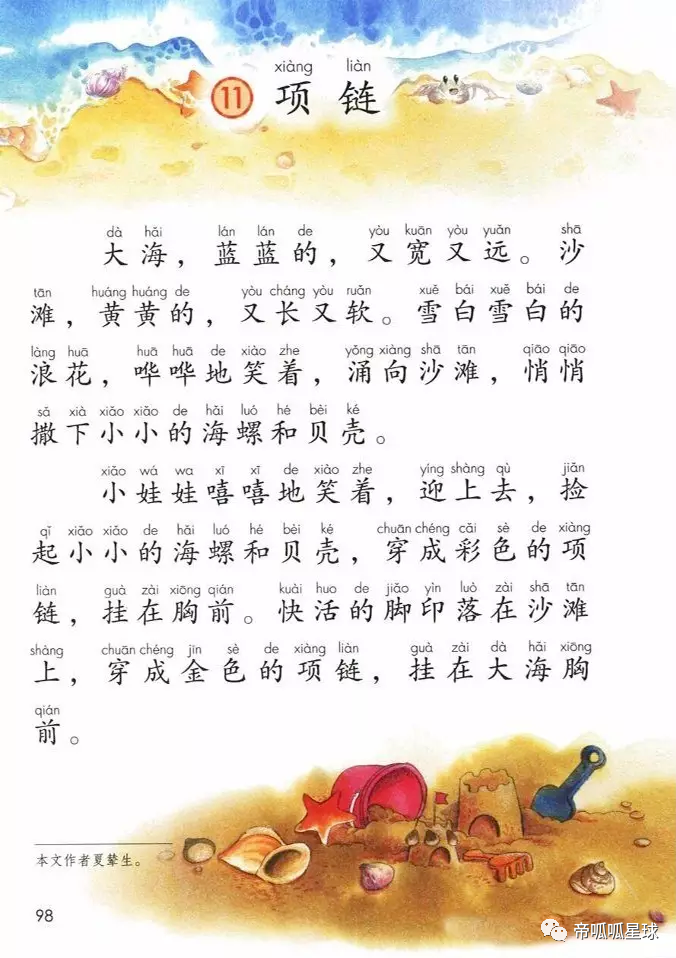 xiàng liàn
11 项链
dà hǎi lán lán de yòu kuān yòu yuǎn shā
大海，蓝蓝的，又宽又远。沙
tān huáng huáng de yòu cháng yòu ruǎn xuě bái xuě bái de
滩，黄黄的，又长又软。雪白雪白的
làng huā huā huā de xiào zhe yǒng xiàng shā tān qiāo qiāo
浪花，哗哗地笑着，涌向沙滩，悄悄
sǎ xià xiǎo xiǎo de hǎi luó hé bèi ké
撒下小小的海螺和贝壳。
xiǎo wá wa xī xī de xiào zhe yíng shàng qù jiǎn
小娃娃嘻嘻地笑着，迎上去，捡
qǐ xiǎo xiǎo de hǎi luó hé bèi ké chuān chéng cǎi sè de xiàng
起小小的海螺和贝壳，穿成彩色的项
liàn guà zài xiōng qián kuài huo de jiǎo yìn luò zài shā tān
链，挂在胸前。快活的脚印落在沙滩
shàng chuān chéng jīn sè de xiàng liàn guà zài dà hǎi xiōng
上，穿成金色的项链，挂在大海胸
qián
前。
本文作者夏辇生。
98
帝呱呱星球